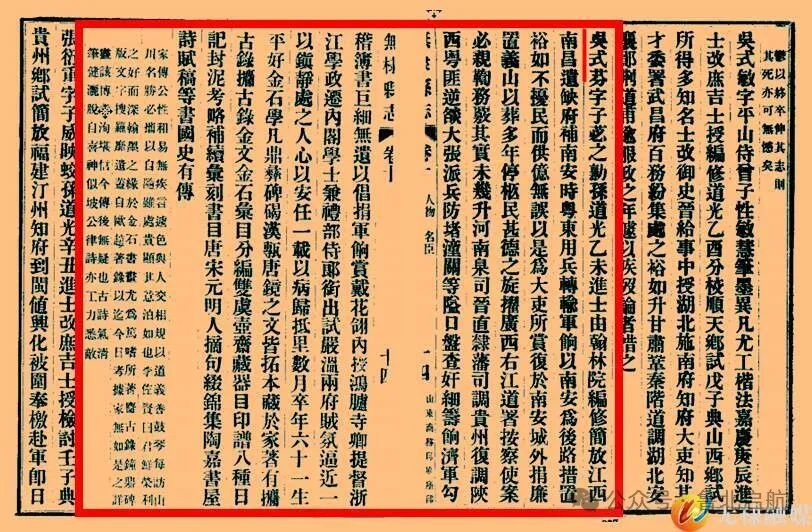 鬱以終卒伸其志則
其死亦可無憾矣
吳式敏字平山侍曾子性敏慧筆墨異凡尤工楷法嘉慶庚辰進
士改庶吉士授編修道光乙酉分校順天鄉試戊子典山西鄉試
所得多知名士改御史晉給事中授湖北施南府知府大吏知其
才委署武昌府百務紛集處之裕如升甘肅鞏秦階道調湖北安
襄鄖荆道用意服政之年遽以疾歿論者惜之
吳式芬字子苾之勷孫道光乙未進士由翰林院編修簡放江西
南昌遺缺府補南安時粵東用兵轉輸軍餉以南安爲後路措置
裕如不擾民而供億無誤以是爲大吏所賞復於南安城外捐廉
置義山以葬多年停柩民甚德之旋擢廣西右江道署按察使案
必親鞫務嚴其實未幾升河南臬司晉直隸藩司調貴州復調陝
西粵匪逆燄大張派兵防堵潼關等隘口盤查奸細籌餉濟軍勾
縣志 卷十 人物 名臣 十四
無棣縣志 卷十 十四
稽簿書巨細無遺以倡捐軍餉賞戴花翎內授鴻臚寺卿提督浙
江學政遷內閣學士兼禮部侍郎銜出試嚴溫兩府賊氛逼近一
以鎮靜處之人心以安任一載以病歸抵里數月卒年六十一生
平好金石學凡鼎彝碑碣漢甎唐鏡之文皆拓本藏於家著有攟
古錄攟古錄金文金石彙目分編雙虞壺齋藏器目印譜八種日
記封泥考略補續彙刻書目唐宋元明人摘句綴錦集陶嘉書屋
詩賦稿等書國史有傳
家傳公性和易無疾言遽色與人交相規以道義善鼓琴每訪山
川名勝必攜以自隨雖處貴顯其意泊如也李佐賢曰君鮮榮利
之好而深翰墨之緣於金石書畫尤爲篤嗜所著攟古錄鐘鼎碑
版文字搜羅靡遺蓋自歐趙著錄以迄今日考據家無如是之詳
畫該博洵堪信今傳後無疑也古詩氣清
筆健灑脫自喜神似坡公律詩亦工力悉敵
張衍重字子威映蛟孫道光辛丑進士改庶吉士授檢討壬子典
貴州鄉試簡放福建汀州知府到閩值興化被圍奉檄赴軍即日
公众号